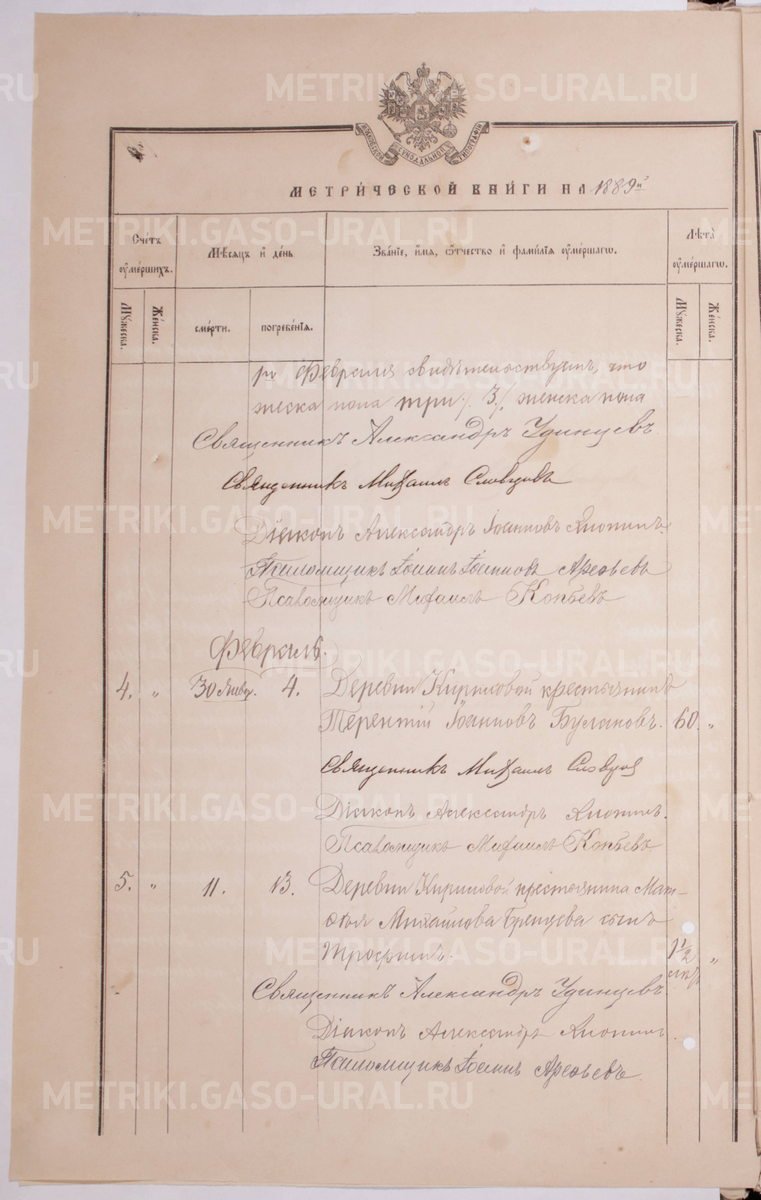 МЕТРИ́ЧЕСКОЙ КНИ́ГИ НА 1889й
Сче́тъ ᲂу҆ме́ршихъ.
Мѣ́сяцъ и҆ де́нь
Зва́нїе, и҆́мя, ѻ҆́тчество и҆ фамилїѧ ᲂу҆ме́ршагѡ.
Лѣ́та ᲂу҆ме́ршагѡ.
Мꙋ́жеска.
Же́нска.
сме́рти.
погребе́нїя.
Мꙋ́жеска.
Же́нска.
Февраля свидѣтельствуемъ, что
жеска пола три /3/, женска пола
Священникъ Александръ Удинцевъ
Священникъ Михаилъ Словцовъ
Діаконъ Александръ Іоанновъ
Псаломщикъ Іоаннъ Іоанновъ Арефьевъ
Псаломщикъ Михаилъ Копьевъ
Февраль.
4. " 30 Янвр. 4. Деревни Кирилловой крестьянинъ
Терентій Іоанновъ Булановъ. 60. "
Священникъ Михаилъ Словцов
Діаконъ Александръ
Псаломщикъ Михаилъ Копьевъ
5. " 11. 13. Деревни Кирилловой крестьянина Мат-
ѳея Михайлова сынъ
Трофимъ. 1 1/2 "
Священникъ Александръ Удинцевъ
Діаконъ Александръ
Псаломщикъ Іоаннъ Арефьевъ
METRIKI.GASO-URAL.RU